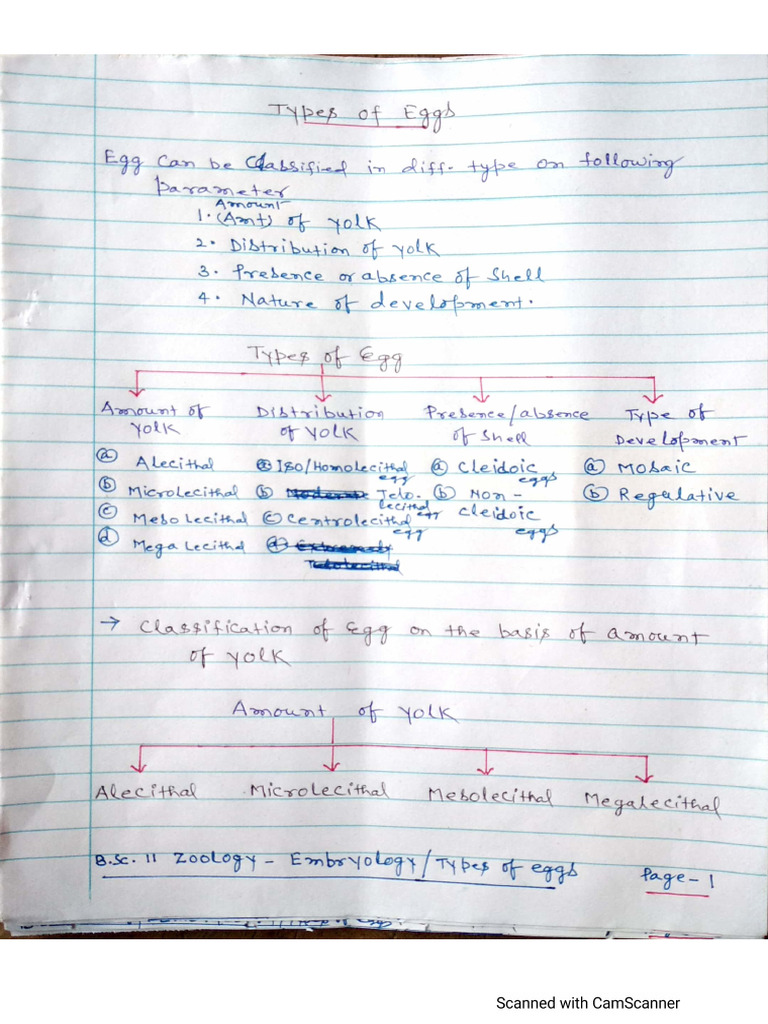 Types of Eggs
Egg can be Classified in diff. type on following
parameter
Amount
1. (Amt) of yolk
2. Distribution of yolk
3. Presence or absence of Shell
4. Nature of development.
Types of Egg
Amount of yolk
Distribution of yolk
Presence/absence of Shell
Type of Development
(a) Alecithal
(b) Microlecithal
(c) Mesolecithal
(d) Megalecithal
(a) Iso/Homolecithal egg
(b) Telolecithal egg
(c) Centrolecithal egg
(d) Extremely Telolecithal
(a) Cleidoic eggs
(b) Non-cleidoic eggs
(a) Mosaic
(b) Regulative
→ Classification of Egg on the basis of amount
of yolk
Amount of yolk
Alecithal Microlecithal Mesolecithal Megalecithal
B.Sc. II Zoology - Embryology/Types of eggs Page-1
Scanned with CamScanner